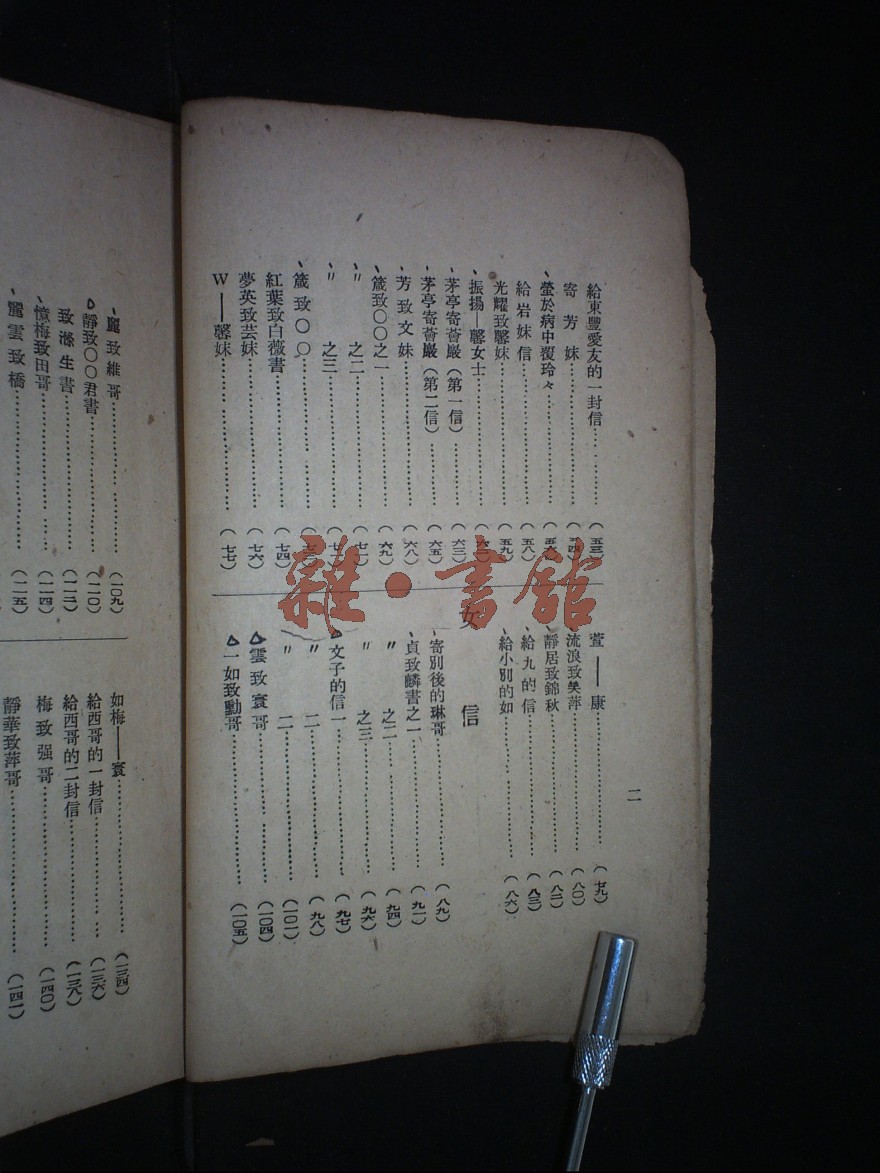 二
給東豐愛友的一封信……………(五三)
寄芳妹……………(五四)
、瑩於病中覆玲々……………(五六)
給岩妹信……………(五八)
光耀致馨妹……………(五九)
、振揚—馨女士……………
、茅亭寄薈巖(第一信)……………(六三)
、茅亭寄薈巖(第二信)……………(六五)
、芳致文妹……………(六八)
、箴致〇〇之一……………(六九)
、〃 之二……………(七一)
、〃 之三……………
、箴致〇〇……………
紅葉致白薇書……………(七四)
夢英致芸妹……………(七六)
W——馨妹……………(七七)
萱——康……………(七九)
、流浪致失萍……………(八〇)
、靜居致錦秋……………(八二)
、給九的信……………(八三)
、給小別的如……………(八六)
女 信
、寄別後的琳哥……………(八九)
、貞致麟書之一……………(九一)
〃 之二……………(九四)
〃 之三……………(九六)
△文子的信一……………(九七)
〃 二……………(九八)
〃 二……………(一〇一)
△雲致寰哥……………(一〇四)
△一如致勳哥……………(一〇五)
、麗致維哥……………(一〇九)
△靜致〇〇君書……………(一一〇)
致滌生書……………(一一二)
、憶梅致田哥……………(一一四)
、鶯雲致橋……………(一一五)
如梅——寰……………(一三四)
給西哥的一封信……………(一三六)
給西哥的二封信……………(一三八)
梅致强哥……………(一四〇)
靜華致萍哥……………(一四一)
雜·書館